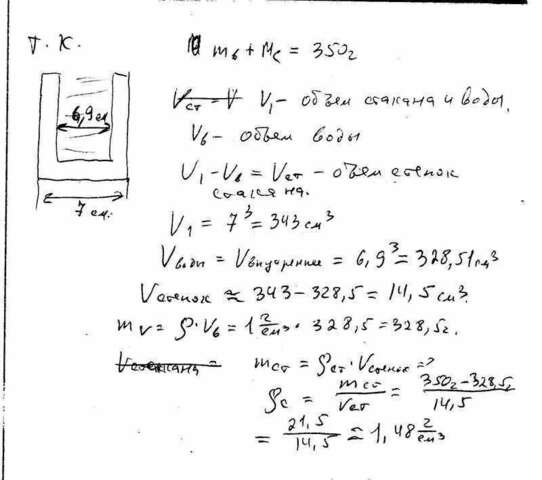 Т. К.
m в + Mс = 350г
6,9см
7 см.
Vст = V V₁ - объем стакана и воды.
Vв - объем воды
V₁ - Vв = Vст - объем стенок
стакана.
V₁ = 7³ = 343 см³
Vводы = Vвнутреннее = 6,9³ = 328,51см³
Vстенок ≈ 343 - 328,5 = 14,5 см³.
mv = ρ · Vв = 1 г/см³ · 328,5 = 328,5г.
Vстакана = mст = ρст · Vстенок =>
ρс = mст/Vст = 350г - 328,5г/14,5
= 21,5/14,5 ≈ 1,48 г/см³